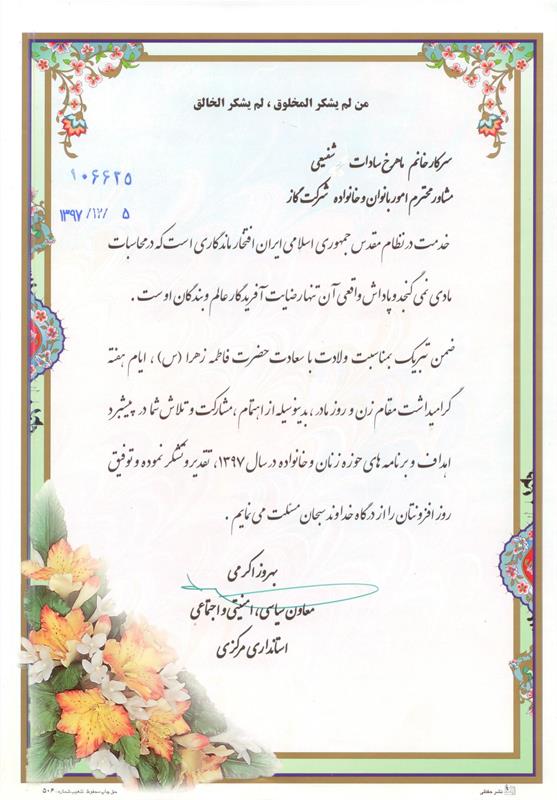 من لم یشکر المخلوق ، لم یشکر الخالق
۱۰۶۶۲۵
۱۳۹۷/۱۲/ ۵
سرکار خانم ماهرخ سادات شفیعی
مشاور محترم امور بانوان و خانواده شرکت گاز
خدمت در نظام مقدس جمهوری اسلامی ایران افتخار ماندگاری است که در محاسبات
مادی نمی گنجد و پاداش واقعی آن تنها رضایت آفریدگار عالم و بندگان اوست .
ضمن تبریک بمناسبت ولادت با سعادت حضرت فاطمه زهرا (س) ، ایام هفته
گرامیداشت مقام زن و روز مادر ، بدینوسیله از اهتمام ، مشارکت و تلاش شما در پیشبرد
اهداف و برنامه های حوزه زنان و خانواده در سال ۱۳۹۷، تقدیر و تشکر نموده و توفیق
روز افزونتان را از درگاه خداوند سبحان مسئلت می نمایم .
بهروز اکرمی
معاون سیاسی ، امنیتی و اجتماعی
استانداری مرکزی
نشر حقانی
حق چاپ محفوظ تذهیب شماره: ۵۰۶